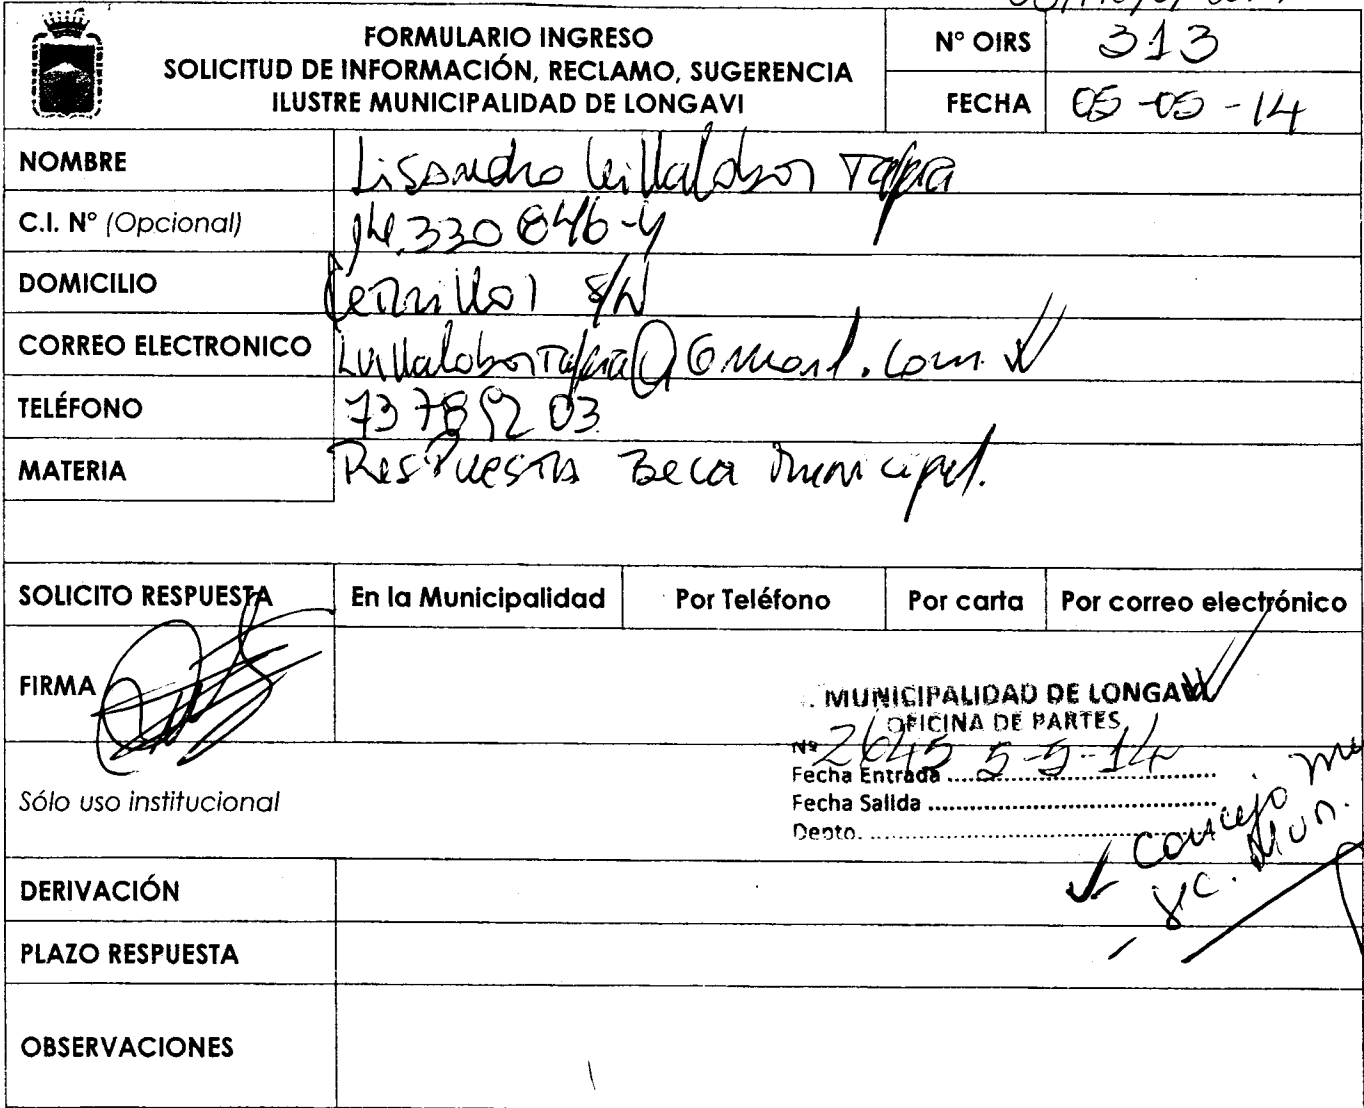 FORMULARIO INGRESO
SOLICITUD DE INFORMACIÓN, RECLAMO, SUGERENCIA
ILUSTRE MUNICIPALIDAD DE LONGAVI
N° OIRS 313
FECHA 05-05-14
NOMBRE Lisandro Villalobos Tapia
C.I. N° (Opcional) 14.330 846-4
DOMICILIO Cerrillos S/N
CORREO ELECTRONICO LVillalobosTapia@Gmail.com
TELÉFONO 73 789203
MATERIA Respuesta Beca Municipal.
SOLICITO RESPUESTA En la Municipalidad Por Teléfono Por carta Por correo electrónico
FIRMA
MUNICIPALIDAD DE LONGAVI
OFICINA DE PARTES
Nº 2645 5-5-14
Fecha Entrada
Fecha Salida
Depto.
Sólo uso institucional
Concejo
DERIVACIÓN
PLAZO RESPUESTA
OBSERVACIONES